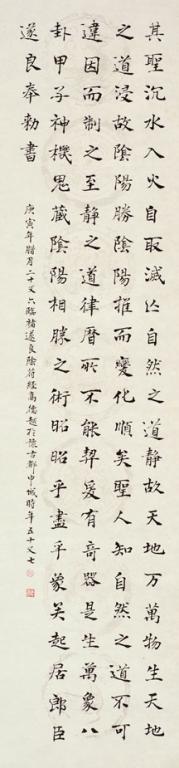 其聖沉水入火自取滅亡自然之道靜故天地万萬物生天地
之道浸故陰陽勝陰陽推而變化順矣聖人知自然之道不可
違因而制之至靜之道律曆所不能契爰有奇器是生萬象八
卦甲子神機鬼藏陰陽相勝之術昭昭乎盡乎象矣起居郎臣
遂良奉勅書
庚寅年腊月二十又六臨褚遂良陰符經高德超於豫古都申城時年五十又七